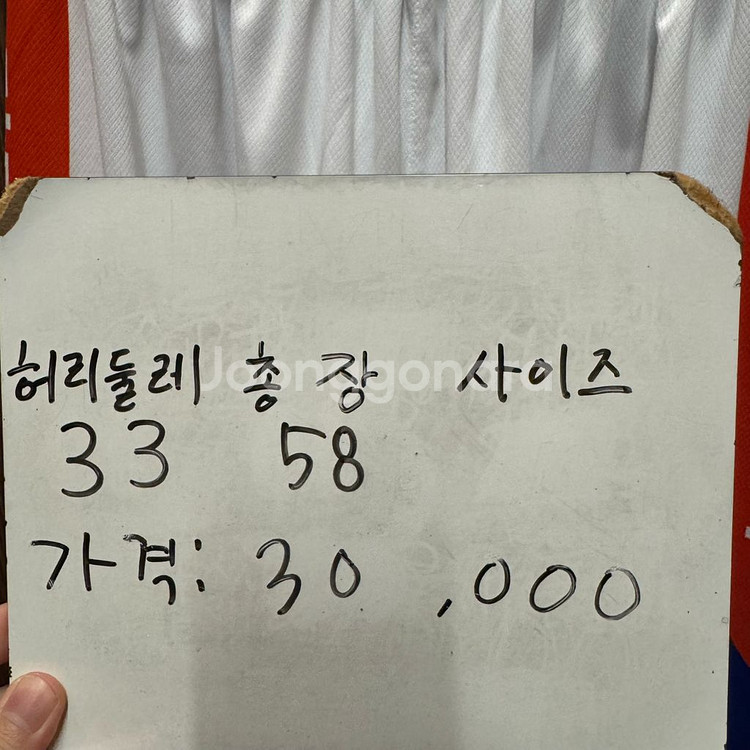 허리둘레 총장 사이즈
Joonggonara
33 58
가격: 30,000